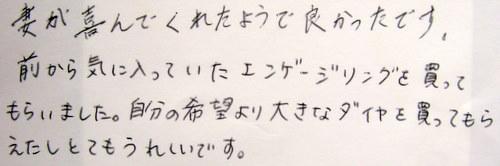 妻が喜んでくれたようで良かったです、
前から気に入っていたエンゲージリングを買って
もらいました。自分の希望より大きなダイヤを買ってもら
えたしとてもうれしいです。